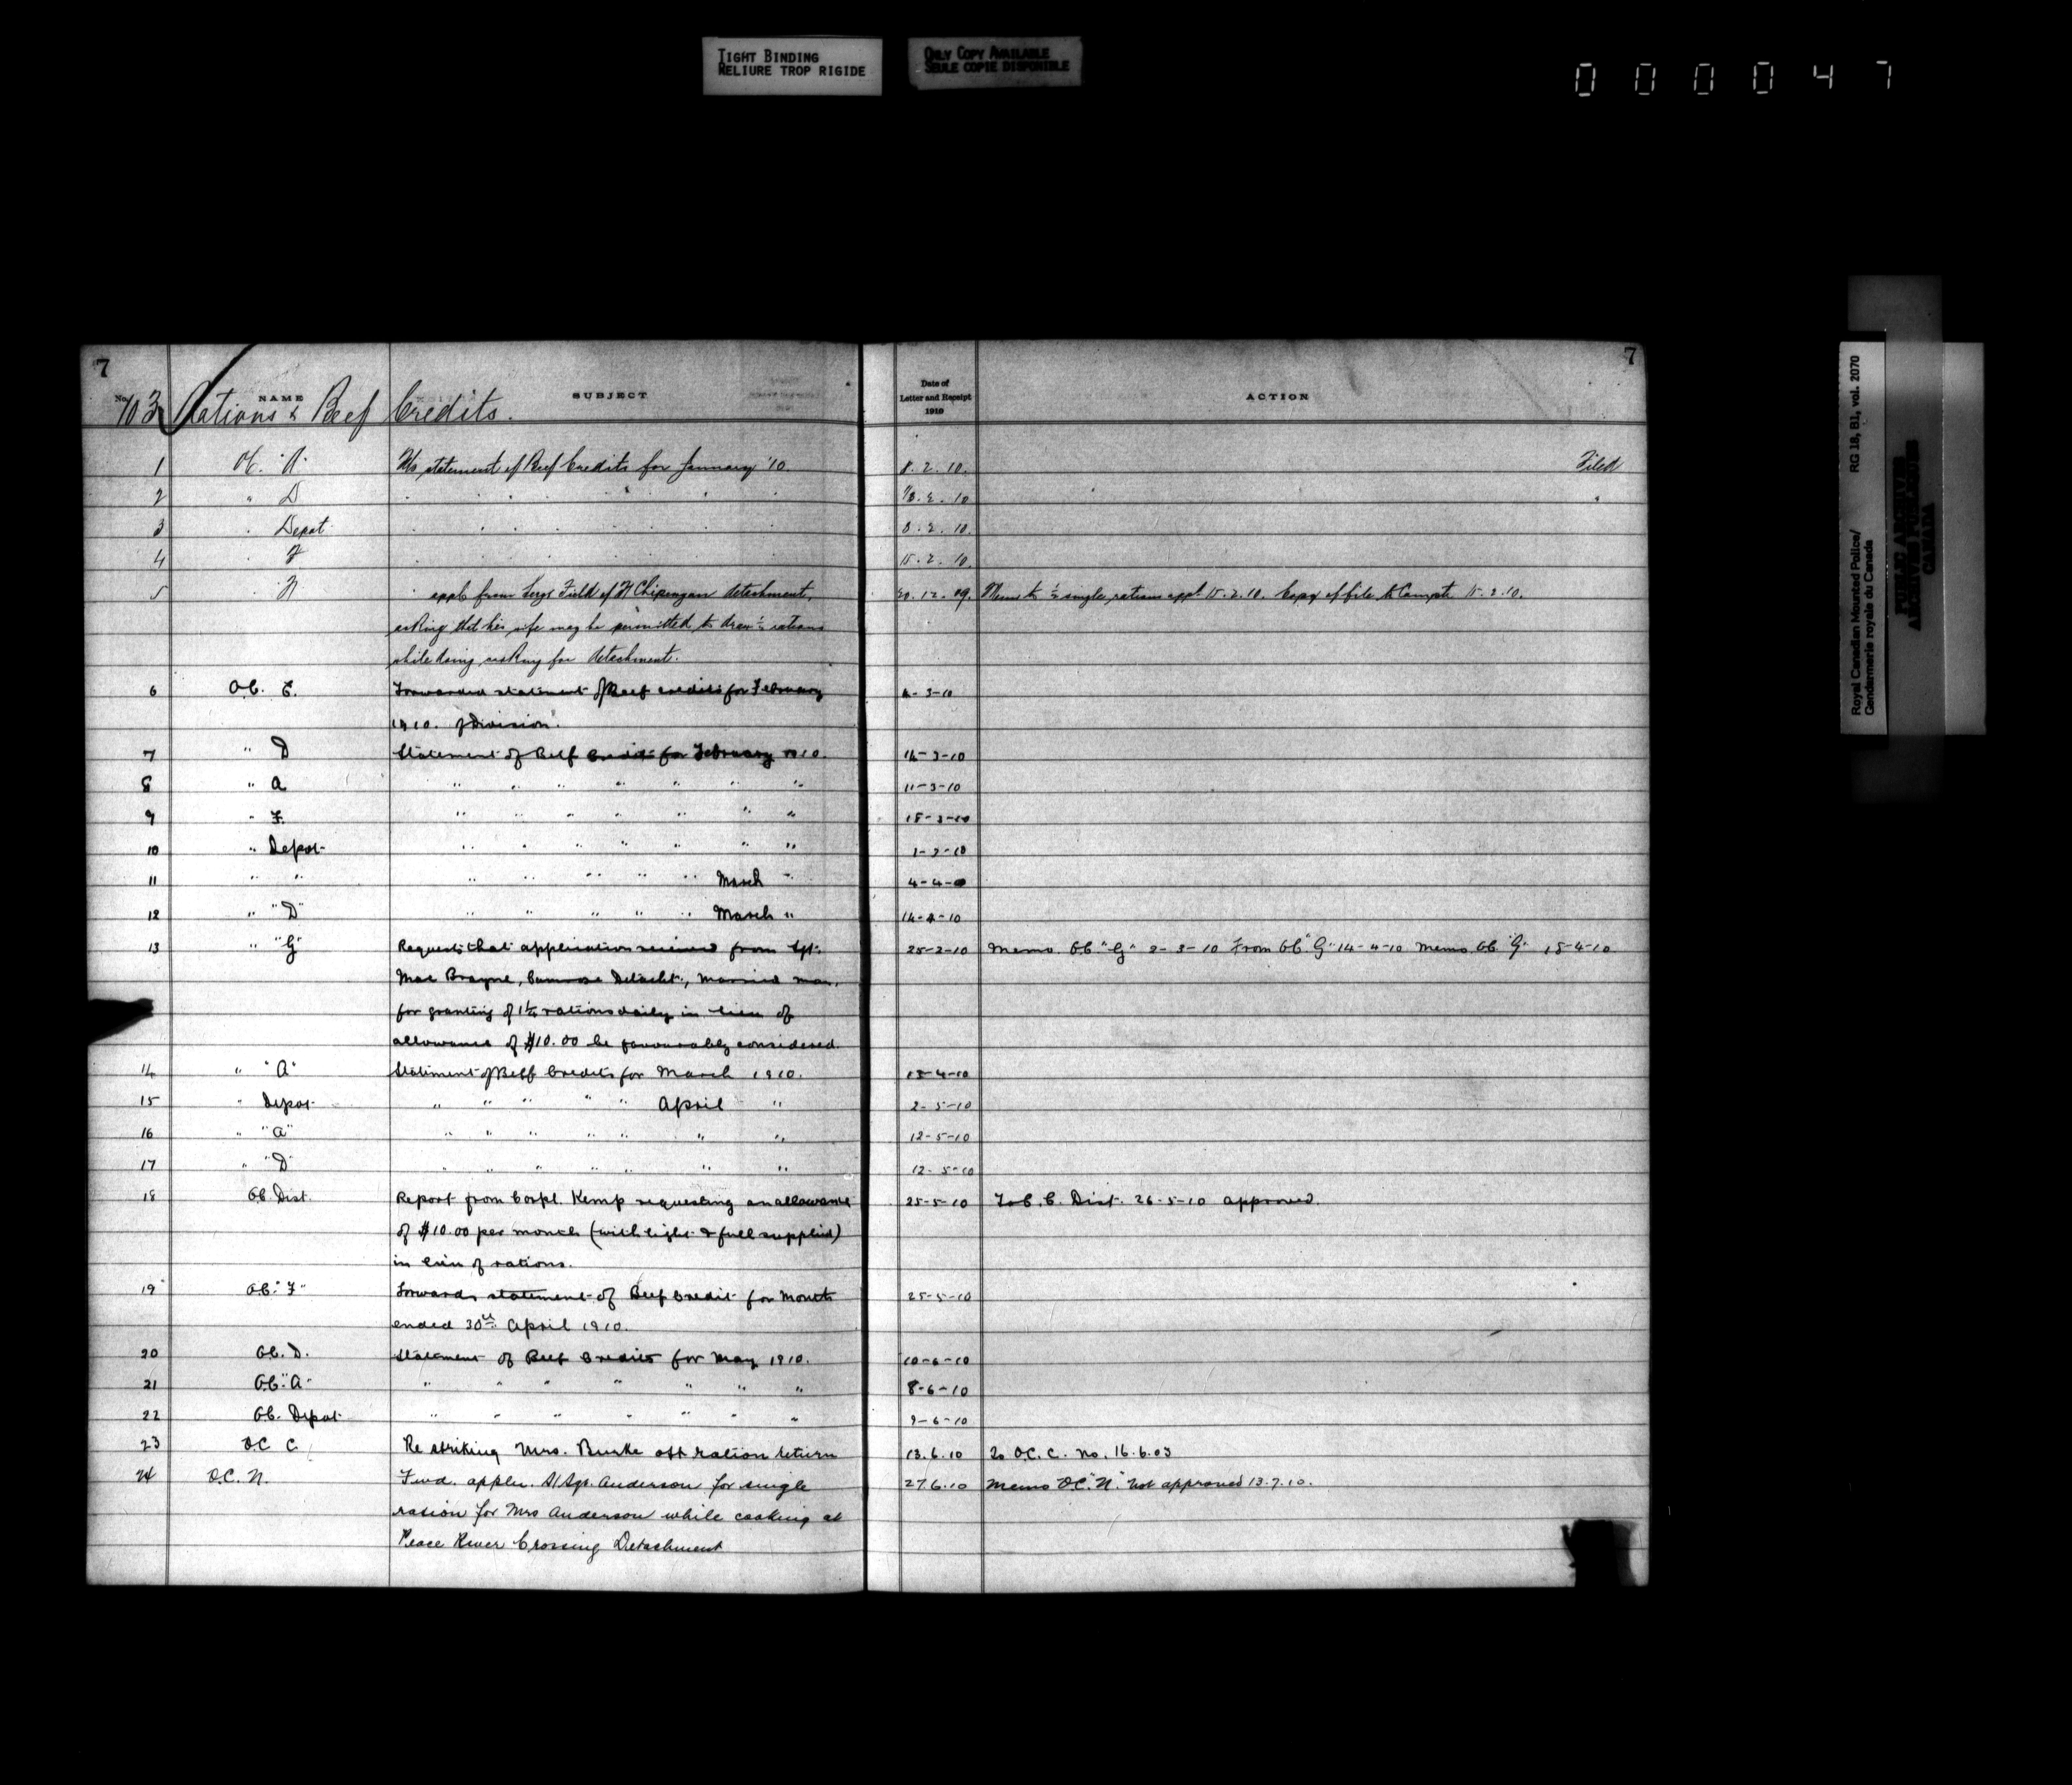 TIGHT BINDING
RELIURE TROP RIGIDE
ONLY COPY AVAILABLE
SEULE COPIE DISPONIBLE
000047
7
7
No. NAME SUBJECT
Date of Letter and Receipt 1910 ACTION
703 Rations & Beef Credits.
1 OC. "A" statement of Beef Credits for January '10 8.2.10. Filed
2 " D 10.2.10 "
3 " Depot 8.2.10.
4 " F 15.2.10.
5 " N appl. from Sergt Field of Ft Chipewyan detachment, 20.12.09. Memo to ½ single rations appd 15.2.10. Copy of file to Compt. 15.2.10.
asking that his wife may be permitted to draw ½ rations
while doing cooking for detachment.
6 OC. E. Forwarded statement of Beef credits for February 4-3-10
1910. of Division.
7 " D Statement of Beef Credits for February 1910. 14-3-10
8 " A " " " " " " " 11-3-10
9 " F. " " " " " " " 18-3-10
10 " Depot " " " " " " " 1-3-10
11 " " " " " " " March " 4-4-10
12 " "D" " " " " " March " 14-4-10
13 " "G" Requests that application received from Sgt. 25-2-10 Memo. OC. "G" 2-3-10 From OC "G" 14-4-10 Memo OC. "G" 18-4-10
Mac Brayne, Camrose Detacht., Married man,
for granting of 1½ rations daily in lieu of
allowance of $10.00 be favourably considered.
14 " "A" Statement of Beef Credits for March 1910. 18-4-10
15 " Depot " " " " " April " 2-5-10
16 " "A" " " " " " " " 12-5-10
17 " "D" " " " " " " " 12-5-10
18 OC. Dist. Report from Corpl. Kemp requesting an allowance 25-5-10 To O.C. Dist. 26-5-10 approved.
of $10.00 per month (with light & fuel supplied)
in lieu of rations.
19 OC. "F" Forwards statement of Beef Credit for Month 25-5-10
ended 30th April 1910.
20 OC. D. Statement of Beef Credits for May 1910. 10-6-10
21 OC. "A" " " " " " " " 8-6-10
22 OC. Depot " " " " " " " 9-6-10
23 OC C Re striking Mrs. Burke off ration return 13.6.10 To O.C. C. no. 16.6.03
24 O.C. N. Fwd. appln. S/Sgt. Anderson for single 27.6.10 Memo OC "N" not approved 13.7.10.
ration for Mrs Anderson while cooking at
Peace River Crossing Detachment
Royal Canadian Mounted Police/ RG 18, B1, vol. 2070
Gendarmerie royale du Canada
PUBLIC ARCHIVES
ARCHIVES PUBLIQUES
CANADA